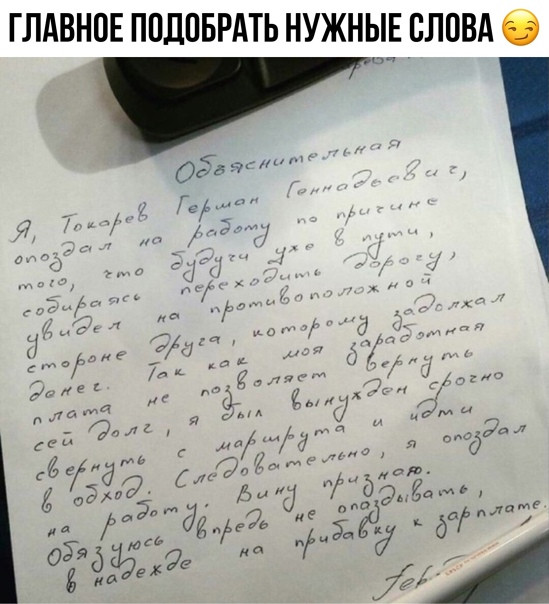 ГЛАВНОЕ ПОДОБРАТЬ НУЖНЫЕ СЛОВА 😏
Объяснительная
Я, Токарев Герман Геннадьевич,
опоздал на работу по причине
того, что будучи уже в пути,
собираясь переходить дорогу,
увидел на противоположной
стороне друга, которому задолжал
денег. Так как моя заработная
плата не позволяет вернуть
сей долг, я был вынужден срочно
свернуть с маршрута и идти
в обход. Следовательно, я опоздал
на работу. Вину признаю.
Обязуюсь впредь не опаздывать,
в надежде на прибавку к зарплате.